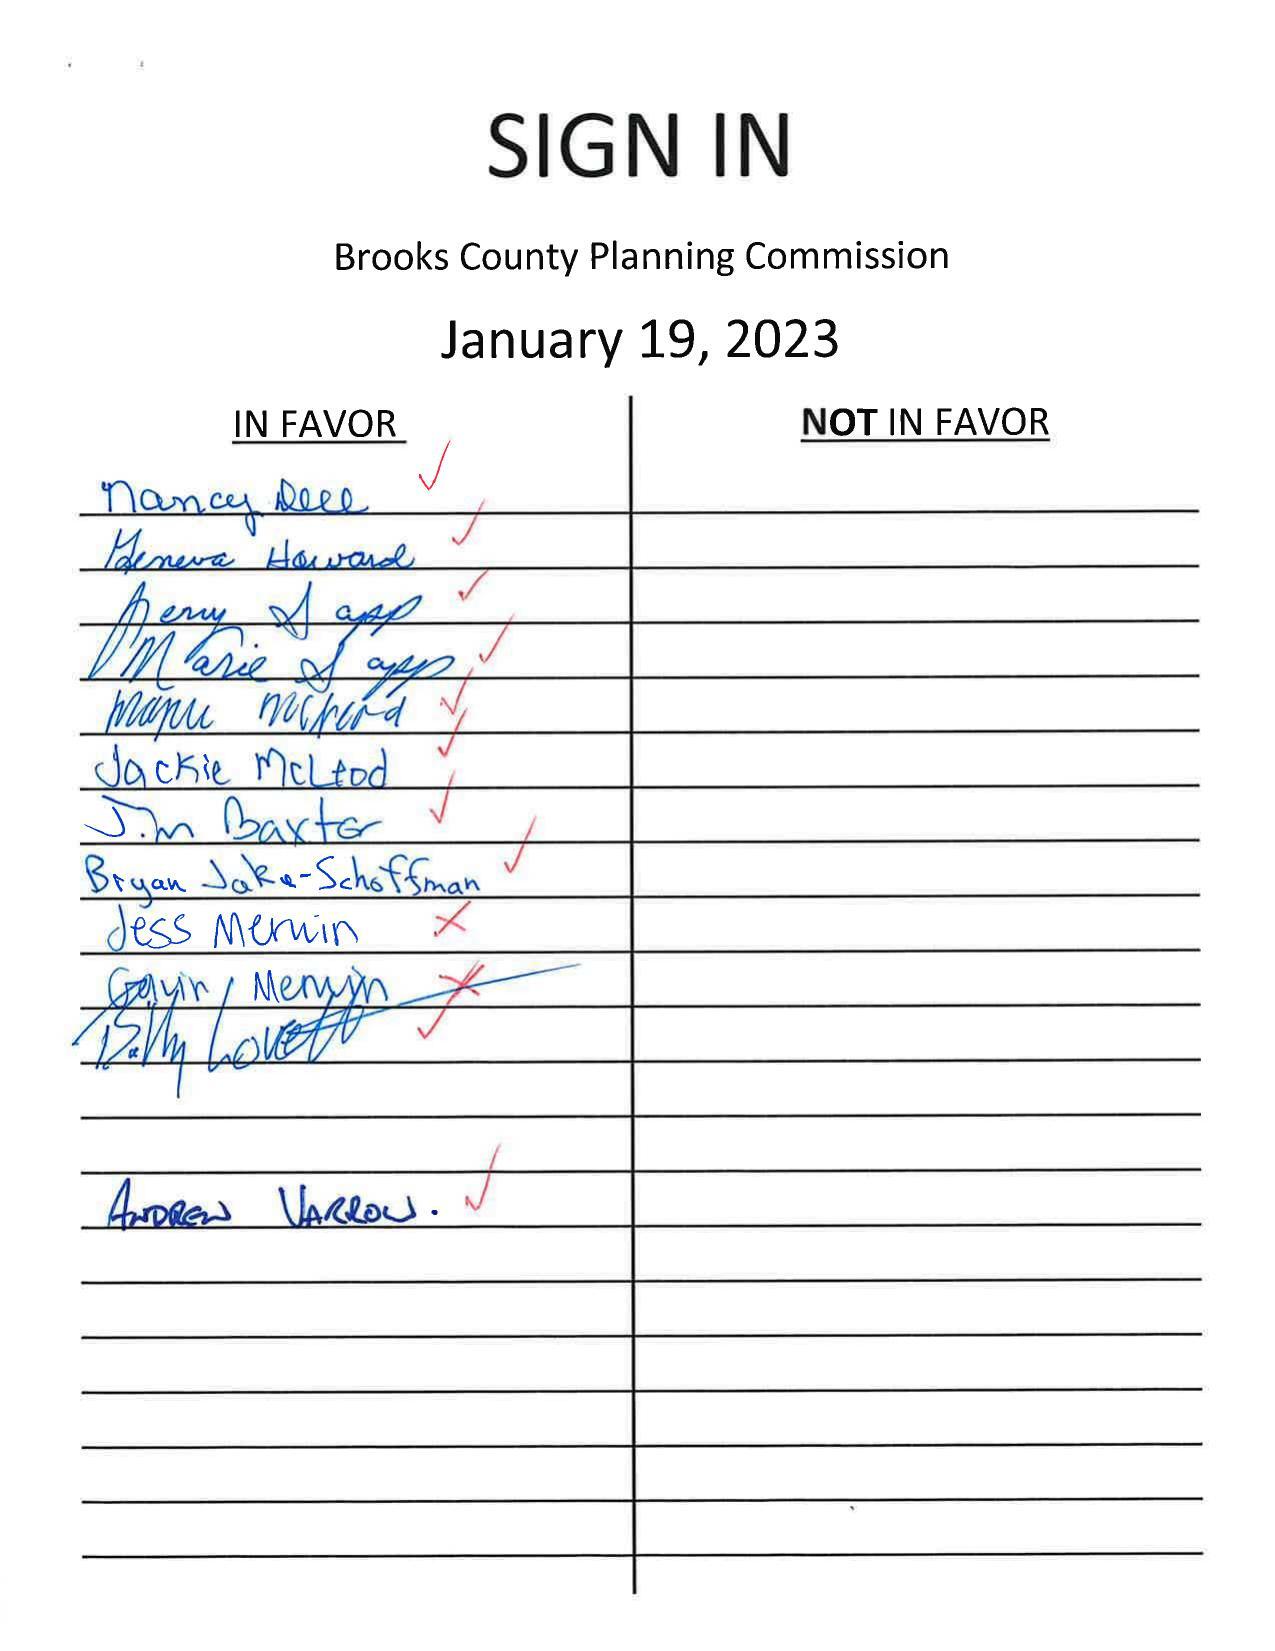 SIGN IN
Brooks County Planning Commission
January 19, 2023
IN FAVOR
NOT IN FAVOR
Nancy Dell
Geneva Howard
Sapp
Marie Sapp
Jackie McLeod
Jim Baxter
Bryan Jake-Schoffman
Jess Merwin
Gavin Merwin
Billy Lovett
ANDREW VARROW.